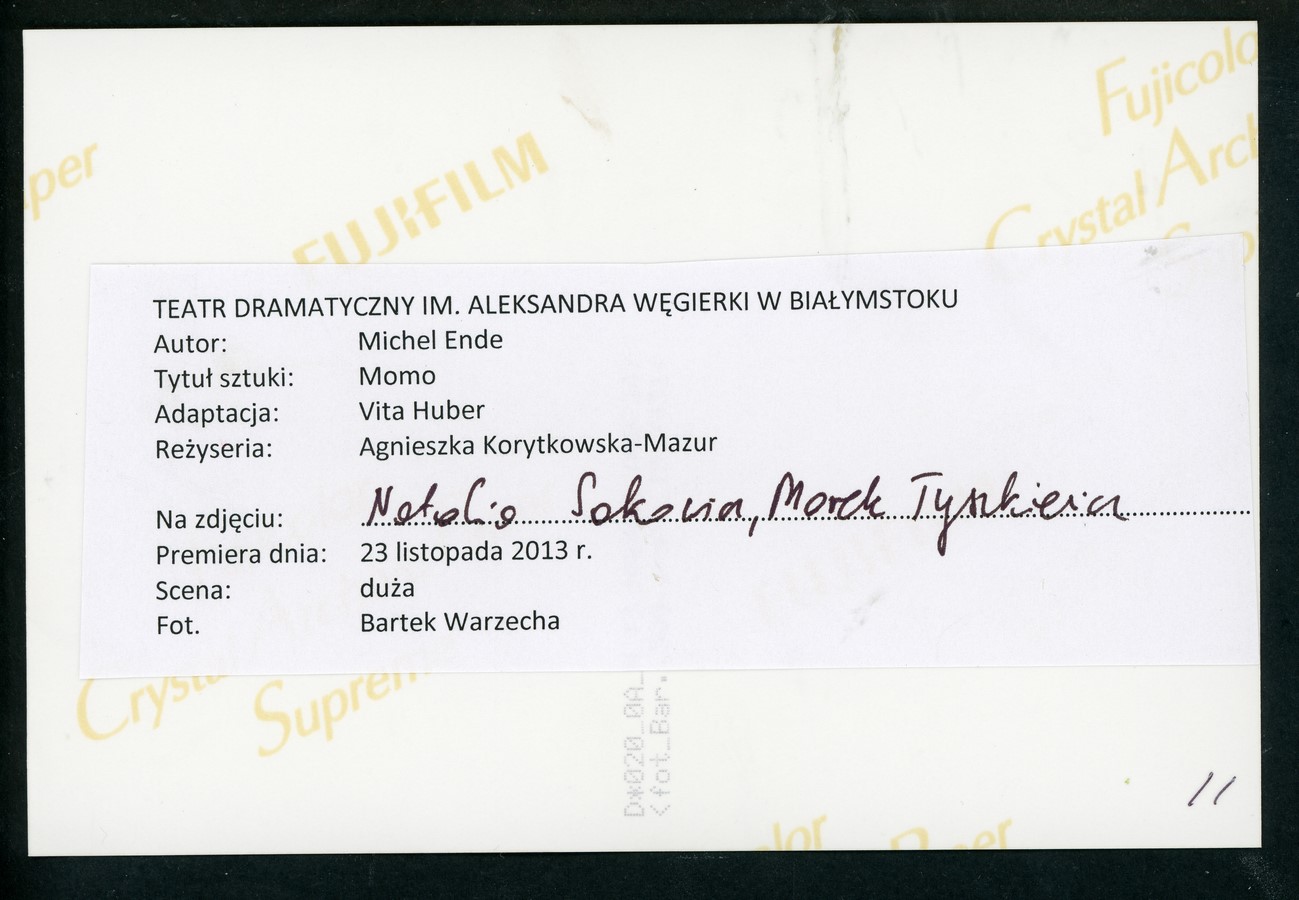 Fujicolo
per
FUJIFILM
Crystal Arch
TEATR DRAMATYCZNY IM. ALEKSANDRA WĘGIERKI W BIAŁYMSTOKU
Autor: Michel Ende
Tytuł sztuki: Momo
Adaptacja: Vita Huber
Reżyseria: Agnieszka Korytkowska-Mazur
Na zdjęciu: Natalia Sakowicz, Marek Tyszkiewicz
Premiera dnia: 23 listopada 2013 r.
Scena: duża
Fot. Bartek Warzecha
Crysta
Suprem
D*020_0A_
<fot_Bar.
11
color
Paper